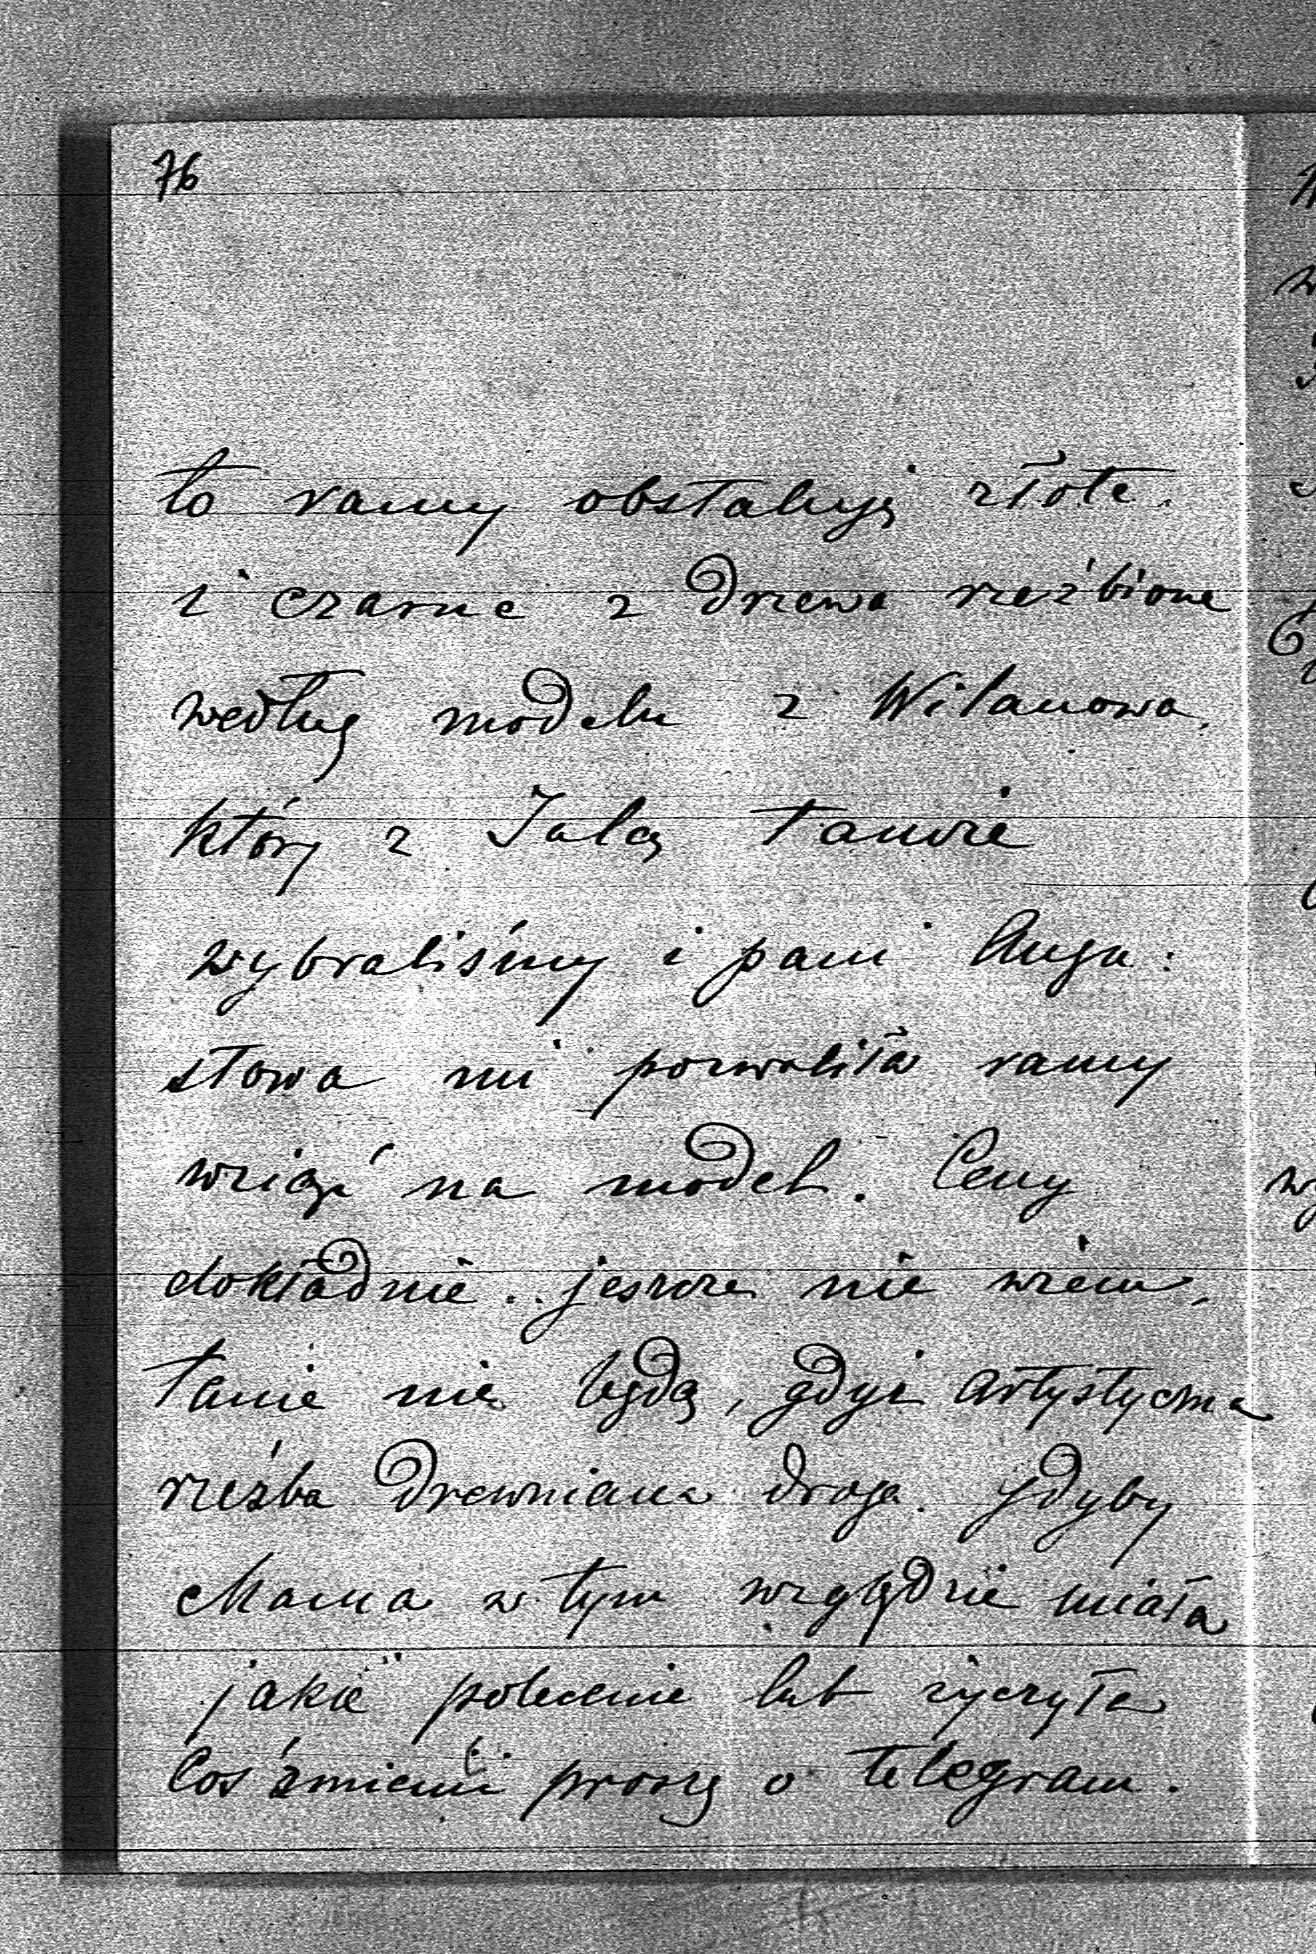 76
to ramy obstaluję złote
i czarne z drzewa rzeźbione
według modelu z Wilanowa,
który z Jalą tamże
wybraliśmy i pani Augu:
stowa mi pozwoliła ramy
wziąść na model. Ceny
dokładnie jeszcze nie wiem,
tanie nie będą, gdyż artystyczna
rzeźba drewniana droga. Gdyby
Mama w tym względzie miała
jakie polecenie lub życzyła
coś zmienić proszę o telegram.